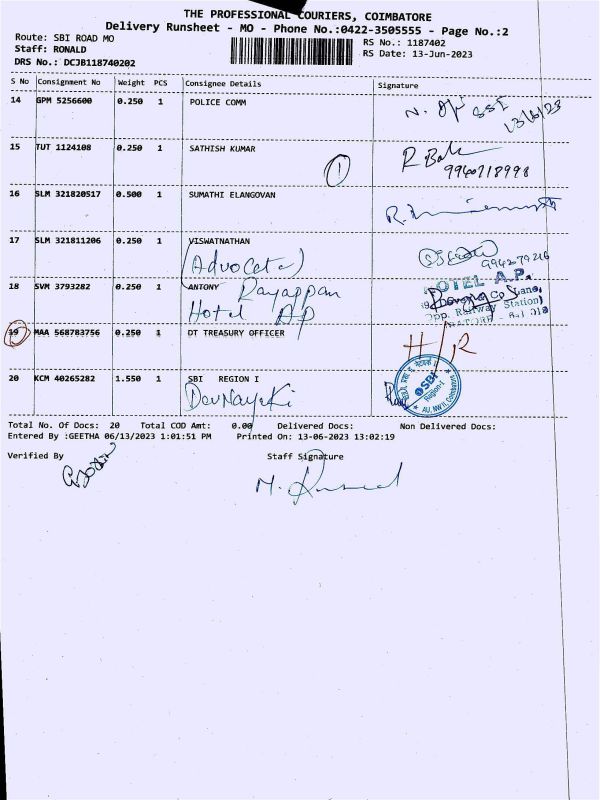 THE PROFESSIONAL COURIERS, COIMBATORE
Delivery Runsheet - MO - Phone No.:0422-3505555 - Page No.:2
Route: SBI ROAD MO
RS No.: 1187402
Staff: RONALD
RS Date: 13-Jun-2023
DRS No.: DCJB118740202
S No Consignment No Weight PCS Consignee Details Signature
14 GPM 5256600 0.250 1 POLICE COMM
13/6/23
15 TUT 1124108 0.250 1 SATHISH KUMAR
1
16 SLM 321820517 0.500 1 SUMATHI ELANGOVAN
17 SLM 321811206 0.250 1 VISWATNATHAN
(Advocate)
18 SVM 3793282 0.250 1 ANTONY Rayappan
Hotel AP
HOTEL A.P.
Opp. Railway Station)
19 MAA 568783756 0.250 1 DT TREASURY OFFICER
H/R
20 KCM 40265282 1.550 1 SBI REGION I
DevNayaki
SBI
Region-I
Total No. Of Docs: 20 Total COD Amt: 0.00 Delivered Docs: Non Delivered Docs:
Entered By :GEETHA 06/13/2023 1:01:51 PM Printed On: 13-06-2023 13:02:19
Verified By Staff Signature